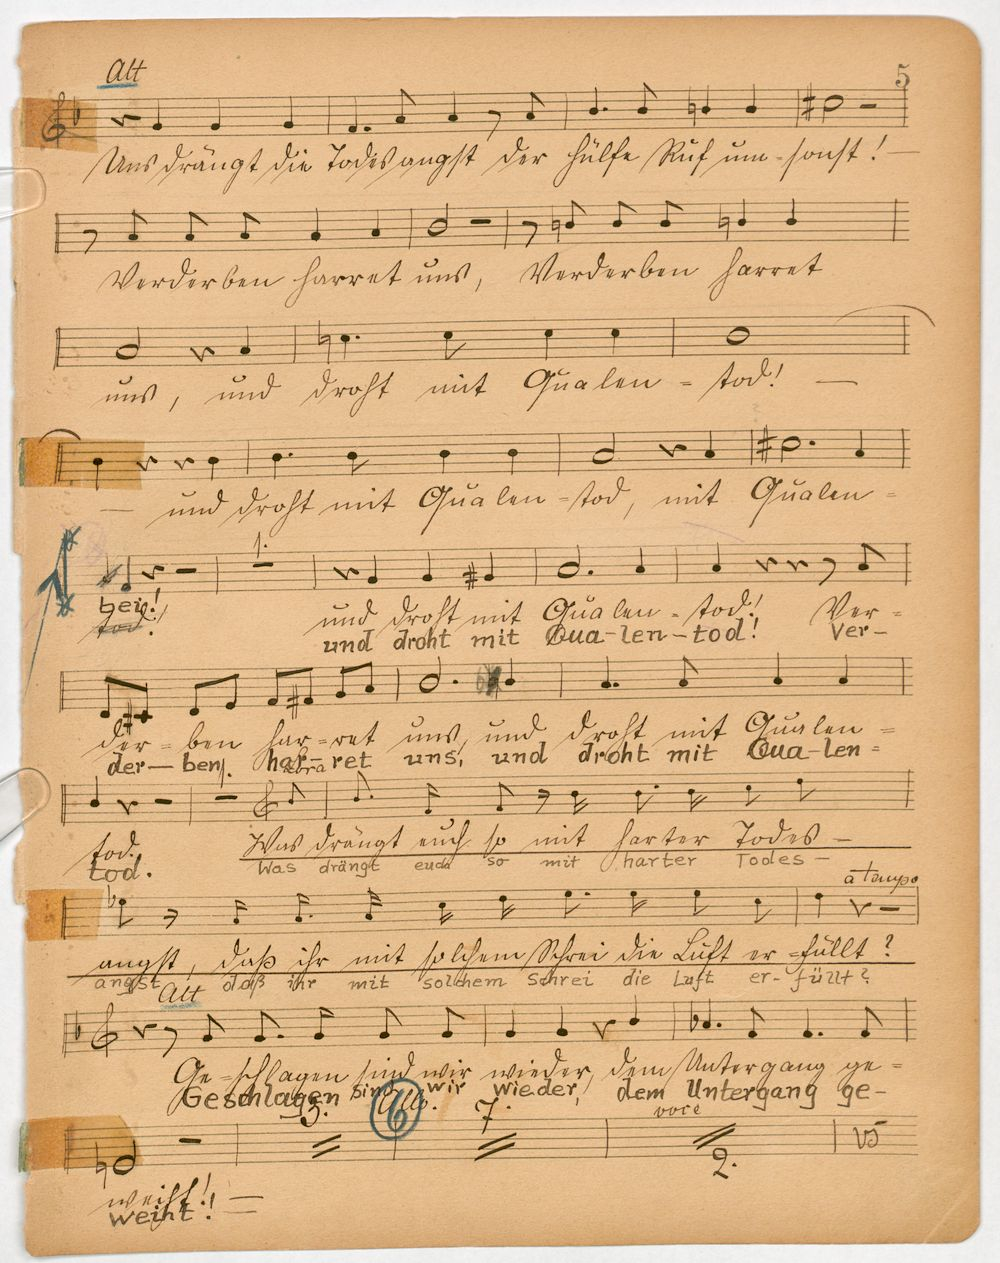 Alt
5
Uns drängt die Todesangst der Hülfe Ruf um-sonst! —
Verderben harret uns, Verderben harret
uns, und droht mit Qualen = tod! —
— und droht mit Qualen = tod, mit Qualen =
1.
bei!
tod! und droht mit Qualen = tod! Ver =
und droht mit Qua-len-tod! Ver-
der = ben har = ret uns, und droht mit Qualen =
der — ben har-ret uns, und droht mit Qua-len =
tod. Was drängt euch so mit harter Todes —
tod. Was drängt euch so mit harter Todes —
a tempo
angst, daß ihr mit solchem Schrei die Luft er = füllt?
angst daß ihr mit solchem Schrei die Luft er-füllt?
Alt
Ge = schlagen sind wir wieder, dem Untergang ge =
Geschlagen sind wir wieder, dem Untergang ge-
5. 6 7. voce
2.
weiht! —
weiht! —